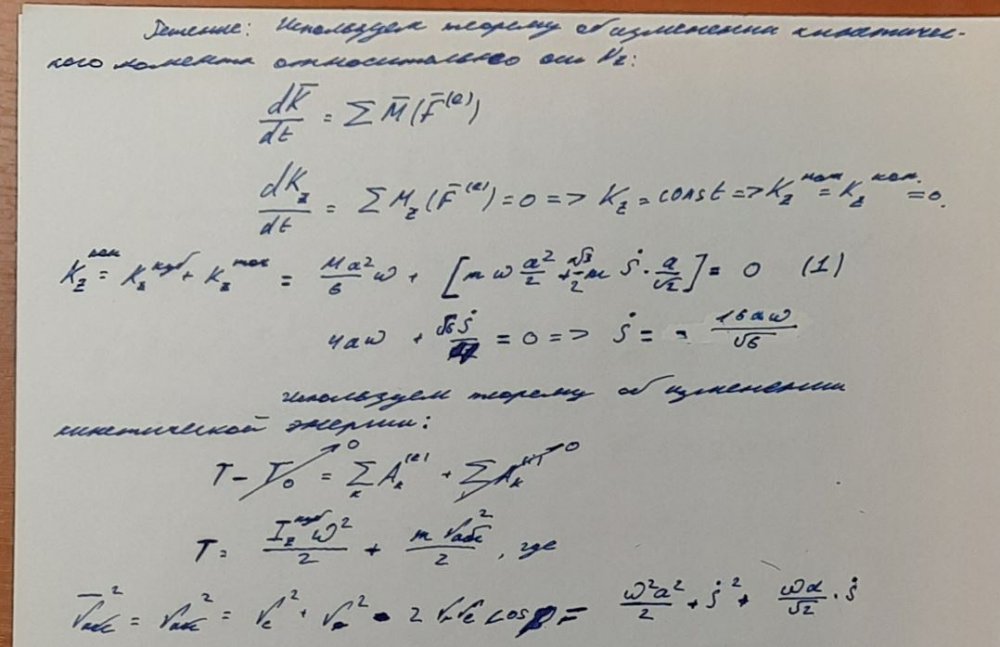 Решение: Используем теорему об изменении кинетичес-
кого момента относительно оси Vz:
dK̅/dt = ΣM̅(F̅^(e))
dKz/dt = ΣMz(F̅^(e)) = 0 => Kz = const => Kz^нач = Kz^кон. = 0.
Kz = Kz^куб + Kz^точ = Ma²ω/6 + [mω a²/2 + √3/2 m ṡ · a/√2] = 0 (1)
4aω + √6ṡ = 0 => ṡ = - 16aω/√6
Используем теорему об изменении
кинетической энергии:
T - T₀ = Σ A_к^(e) + Σ A_к^(i)
T = Iz^куб ω²/2 + m Vабс²/2, где
V̅абс² = Vабс² = Ve² + Vr² 2 Vr Ve cos = ω²a²/2 + ṡ² + ωa/√2 · ṡ